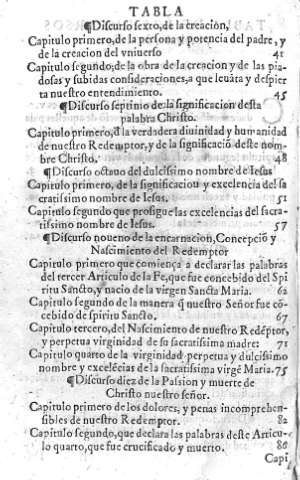 TABLA
¶Discurso sexto, de la creacion,
Capitulo primero, de la persona y potencia del padre, y
de la creacion del vniuerso 41
Capitulo segundo, de la obra de la creacion y de las pia-
dosas y subidas consideraciones, a que leuãta y despier
ta nuestro entendimiento. 45
¶Discurso septimo de la significacion desta
palabra Christo.
Capitulo primero, ð la verdadera diuinidad y humanidad
de nuestro Redemptor, y de la significació deste nom-
bre Christo. 48
¶Discurso octauo del dulcissimo nombre de Iesus
Capitulo primero, de la significacion y excelencia del sa
cratissimo nombre de Iesus. 51
Capitulo segundo que prosigue las excelencias del sacra-
tissimo nombre de Iesus. 57
¶Discurso noueno de la encarnacion, Concepciõ y
Nascimiento del Redemptor
Capitulo primero que comiença a declarar las palabras
del tercer Articulo de la Fe, que fue concebido del Spi
ritu Sancto, y nacio de la virgen Sancta Maria. 62
Capitulo segundo de la manera q̃ nuestro Señor fue cõ
cebido de spiritu Sancto. 67
Capitulo tercero, del Nascimiento de nuestro Redẽptor,
y perpetua virginidad de su sacratissima madre: 71
Capitulo quarto de la virginidad perpetua y dulcissimo
nombre y excelẽcias de la sacratissima virgẽ Maria. 75
¶Discurso diez de la Passion y muerte de
Christo nuestro señor.
Capitulo primero de los dolores, y penas incomprehen-
sibles de nuestro Redemptor. 82
Capitulo segundo, que declara las palabras deste Articu-
lo quarto, que fue crucificado y muerto. 86
Capi